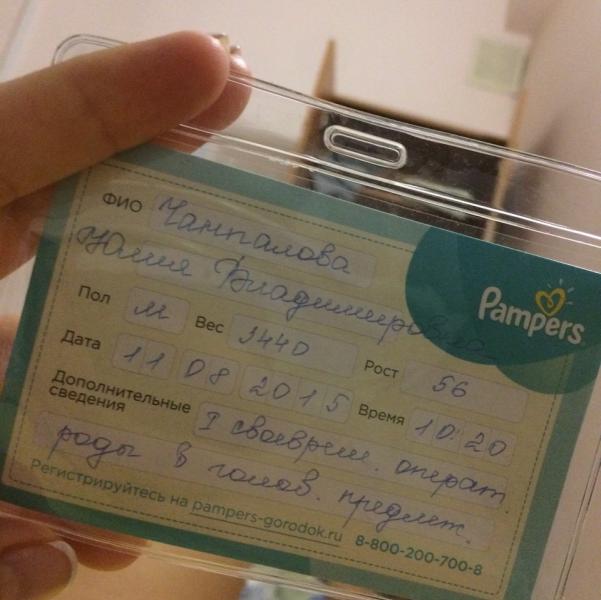 ФИО Чанпалова
Юлия Владимировна
Pampers
Пол м Вес 3440 Рост 56
Дата 11 08 2015 Время 10:20
Дополнительные сведения I своеврем. операт.
роды в голов. предлеж.
Регистрируйтесь на pampers-gorodok.ru 8-800-200-700-8